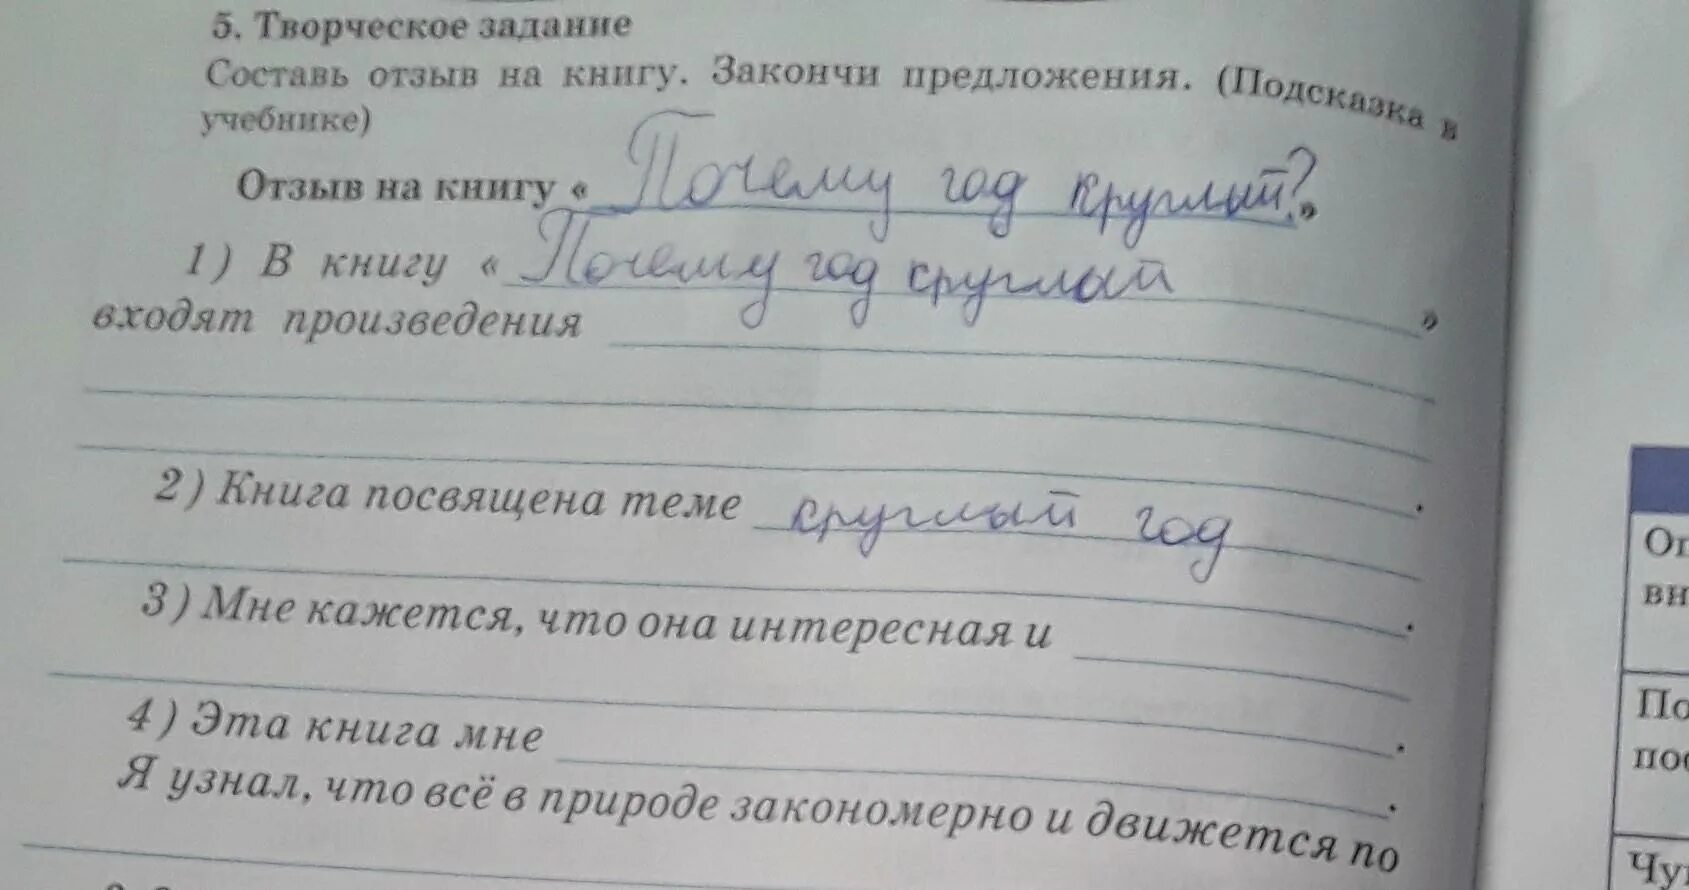 5. Творческое задание
Составь отзыв на книгу. Закончи предложения. (Подсказка в
учебнике)
Отзыв на книгу « Почему год круглый? »
1) В книгу « Почему год круглый »
входят произведения
.
2) Книга посвящена теме круглый год
.
3) Мне кажется, что она интересная и
.
4) Эта книга мне .
Я узнал, что всё в природе закономерно и движется по
вн
По
пос
Чу